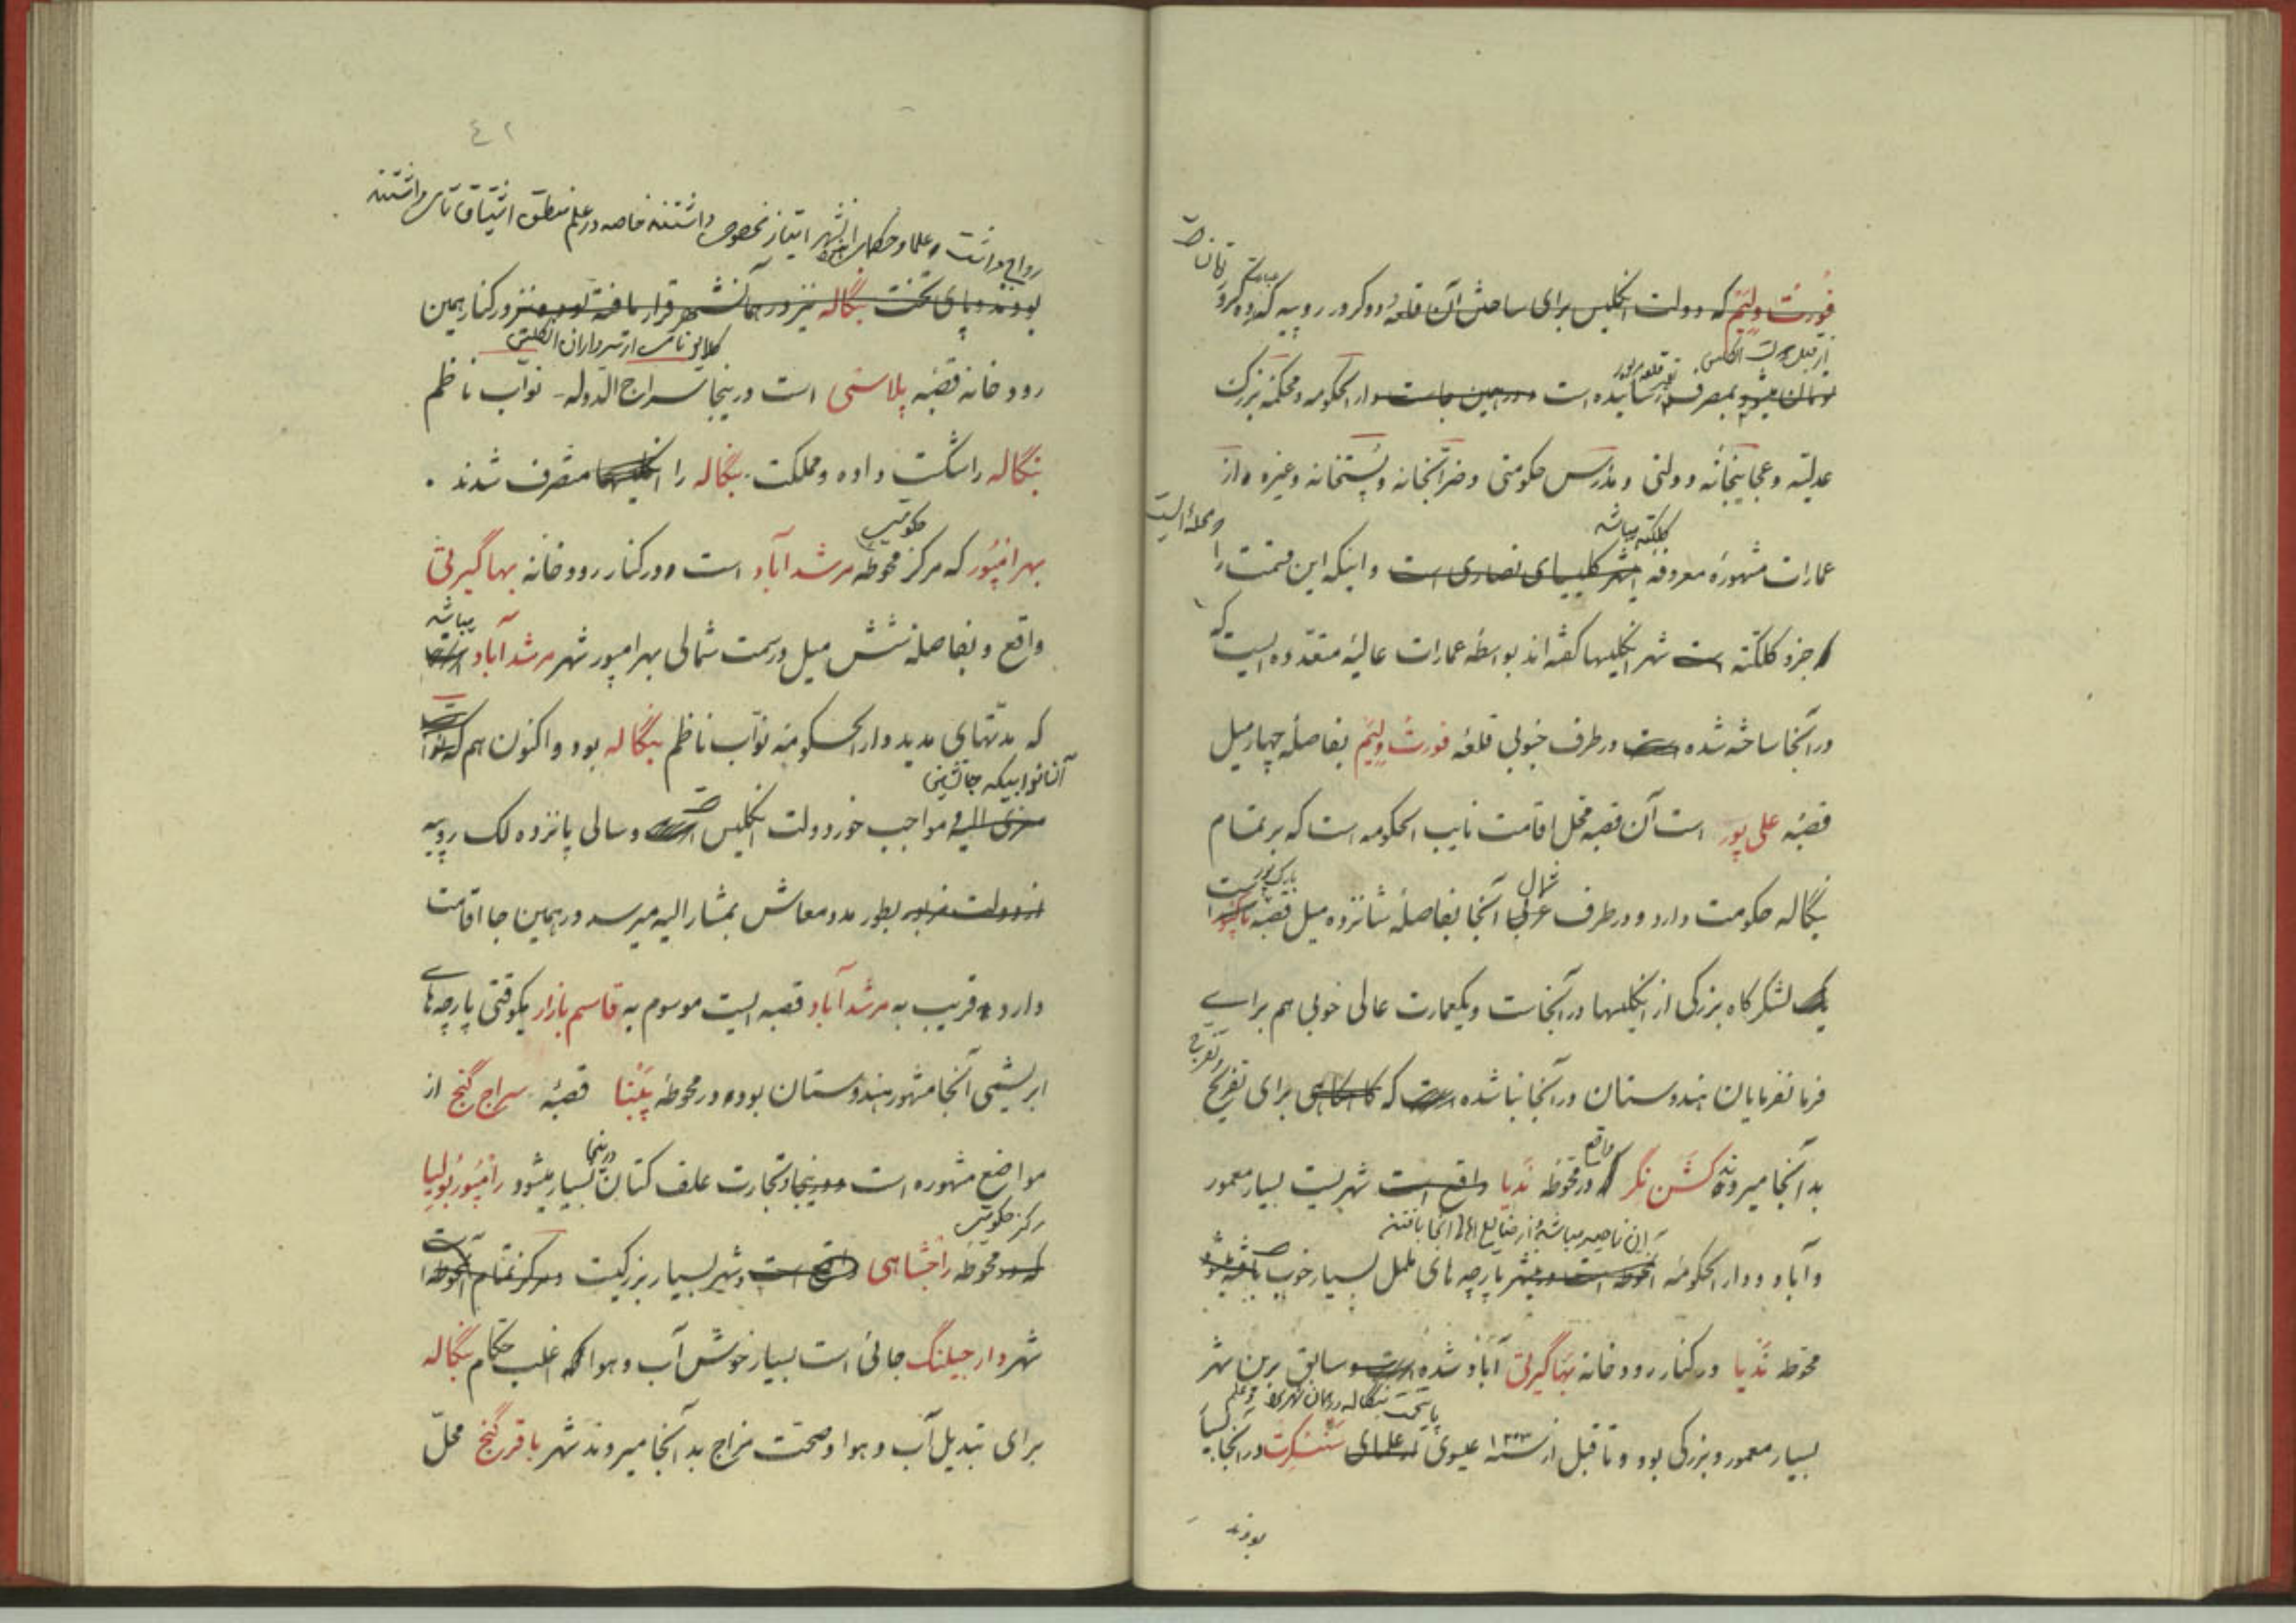 فورت ولیم که دولت انگلیس برای ساختن آن قلعه دو کرور روپیه که ده کرور
از قبل دولت انگلیس
تومان میشود بمصرف رسانیده است و در همین جاست دار الحکومه و محکمه بزرگ
عدلیه و عجایبخانه دولتی و مدرس حکومتی و ضرابخانه و پستخانه و غیره و از
کلکته میباشد
عمارات مشهوره معروفه اینشهر کلیسیای نصاری است و اینکه این قسمت را
جزو کلکته است شهر انگلیسها گفته اند بواسطه عمارات عالیه متعدده ایست که
در آنجا ساخته شده است در طرف جنوبی قلعه فورت ولیم بفاصله چهار میل
قصبه علی پور است آن قصبه محل اقامت نایب الحکومه است که بر تمام
شمال
بنگاله حکومت دارد و در طرف غربی آنجا بفاصله شانزده میل قصبه
یک لشکرگاه بزرگی از انگلیسها در آنجاست و یکعمارت عالی خوبی هم برای
و تفرج
فرمانفرمایان هندوستان در آنجا بنا شده است که گاهگاهی برای تفریح
واقع
بدانجا میروند کشن نگر در محوطه ندیا واقع است شهریست بسیار معمور
آن ناحیه میباشد و از صنایع اهالی آنجا بافتن
و آباد و دار الحکومه آنمحوطه است در اینشهر پارچه های ململ بسیار خوب بافته میشود
محوطه ندیا در کنار رودخانه بهاگیرتی آباد شده است و سابق برین شهر
پایتخت بنگاله همان شهر بود و علم
بسیار معمور و بزرگی بود و تا قبل از سنه ۱۲۰۳ عیسوی علمای سنسکرت در آنجا بسیار
بودند
۴۲
رواج داشت و علما و حکمای آنشهر امتیاز مخصوص داشتند خاصه در علم منطق اشتیاق تام داشتند
بودند و پای تخت بنگاله نیز در همانشهر قرار یافته بود و نیز در کنار همین
کلایو نامی از سرداران انگلیس
رودخانه قصبه پلاسی است در اینجا سراج الدوله نواب ناظم
بنگاله را شکست داده و مملکت بنگاله را انگلیسها متصرف شدند
حکومتی
بهرامپور که مرکز محوطه مرشد آباد است و در کنار رودخانه بهاگیرتی
میباشد
واقع و بفاصله شش میل در سمت شمالی بهرامپور شهر مرشد آباد
که مدتهای مدید دار الحکومه نواب ناظم بنگاله بود و اکنون هم که نواب
آنا نوابیکه جانشین
معزی الیه مواجب خور دولت انگلیس است و سالی پانزده لک روپیه
از دولت مزبور بطور مدد معاش بمشار الیه میرسد در همین جا اقامت
دارد و قریب به مرشد آباد قصبه ایست موسوم به قاسم بازار یکوقتی پارچه های
ابریشمی آنجا مشهور هندوستان بوده و در محوطه پبنا قصبه سراج گنج از
در اینجا
مواضع مشهوره است و در اینجا تجارت علف کتان بسیار میشود رامپور بولیا
مرکز حکومتی
که در محوطه راجشاهی واقع است و شهر بسیار بزرگیست و مرکز تمام آنمحوطه است
شهر دارجیلنگ جائی است بسیار خوش آب و هوا که اغلب حکام بنگاله
برای تبدیل آب و هوا و صحت مزاج بدانجا میروند شهر باقر گنج محل